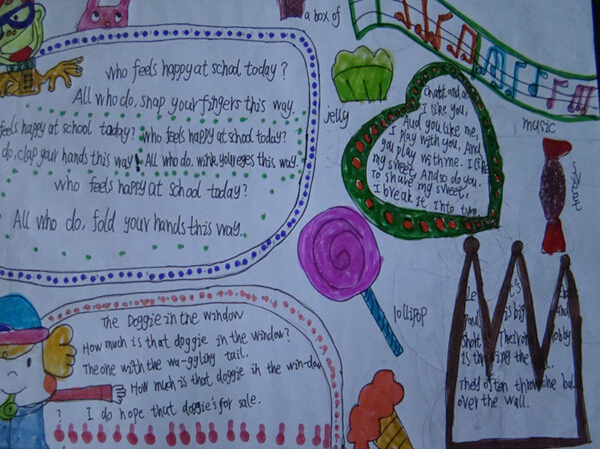 a box of
who feels happy at school today?
All who do, snap your fingers this way.
feels happy at school taday? who feels happy at school today?
do, clap your hands this way. All who do. wink your eyes this way.
who feels happy at school today?
All who do, fold your hands this way.
jelly
music
chant and
I like you,
And you like me,
I play with you, And
you play with me. I like
my sweet, And so do you.
To share my sweet,
I break it into two
sweet
lollipop
The Doggie in the window
How much is that doggie in the window?
The one with the wa-ggling tail.
How much is that doggie in the win-dow
? I do hope that doggie's for sale.
and
is big
short
Their
obby
Is throwing the
They often throw the ball
over the wall.